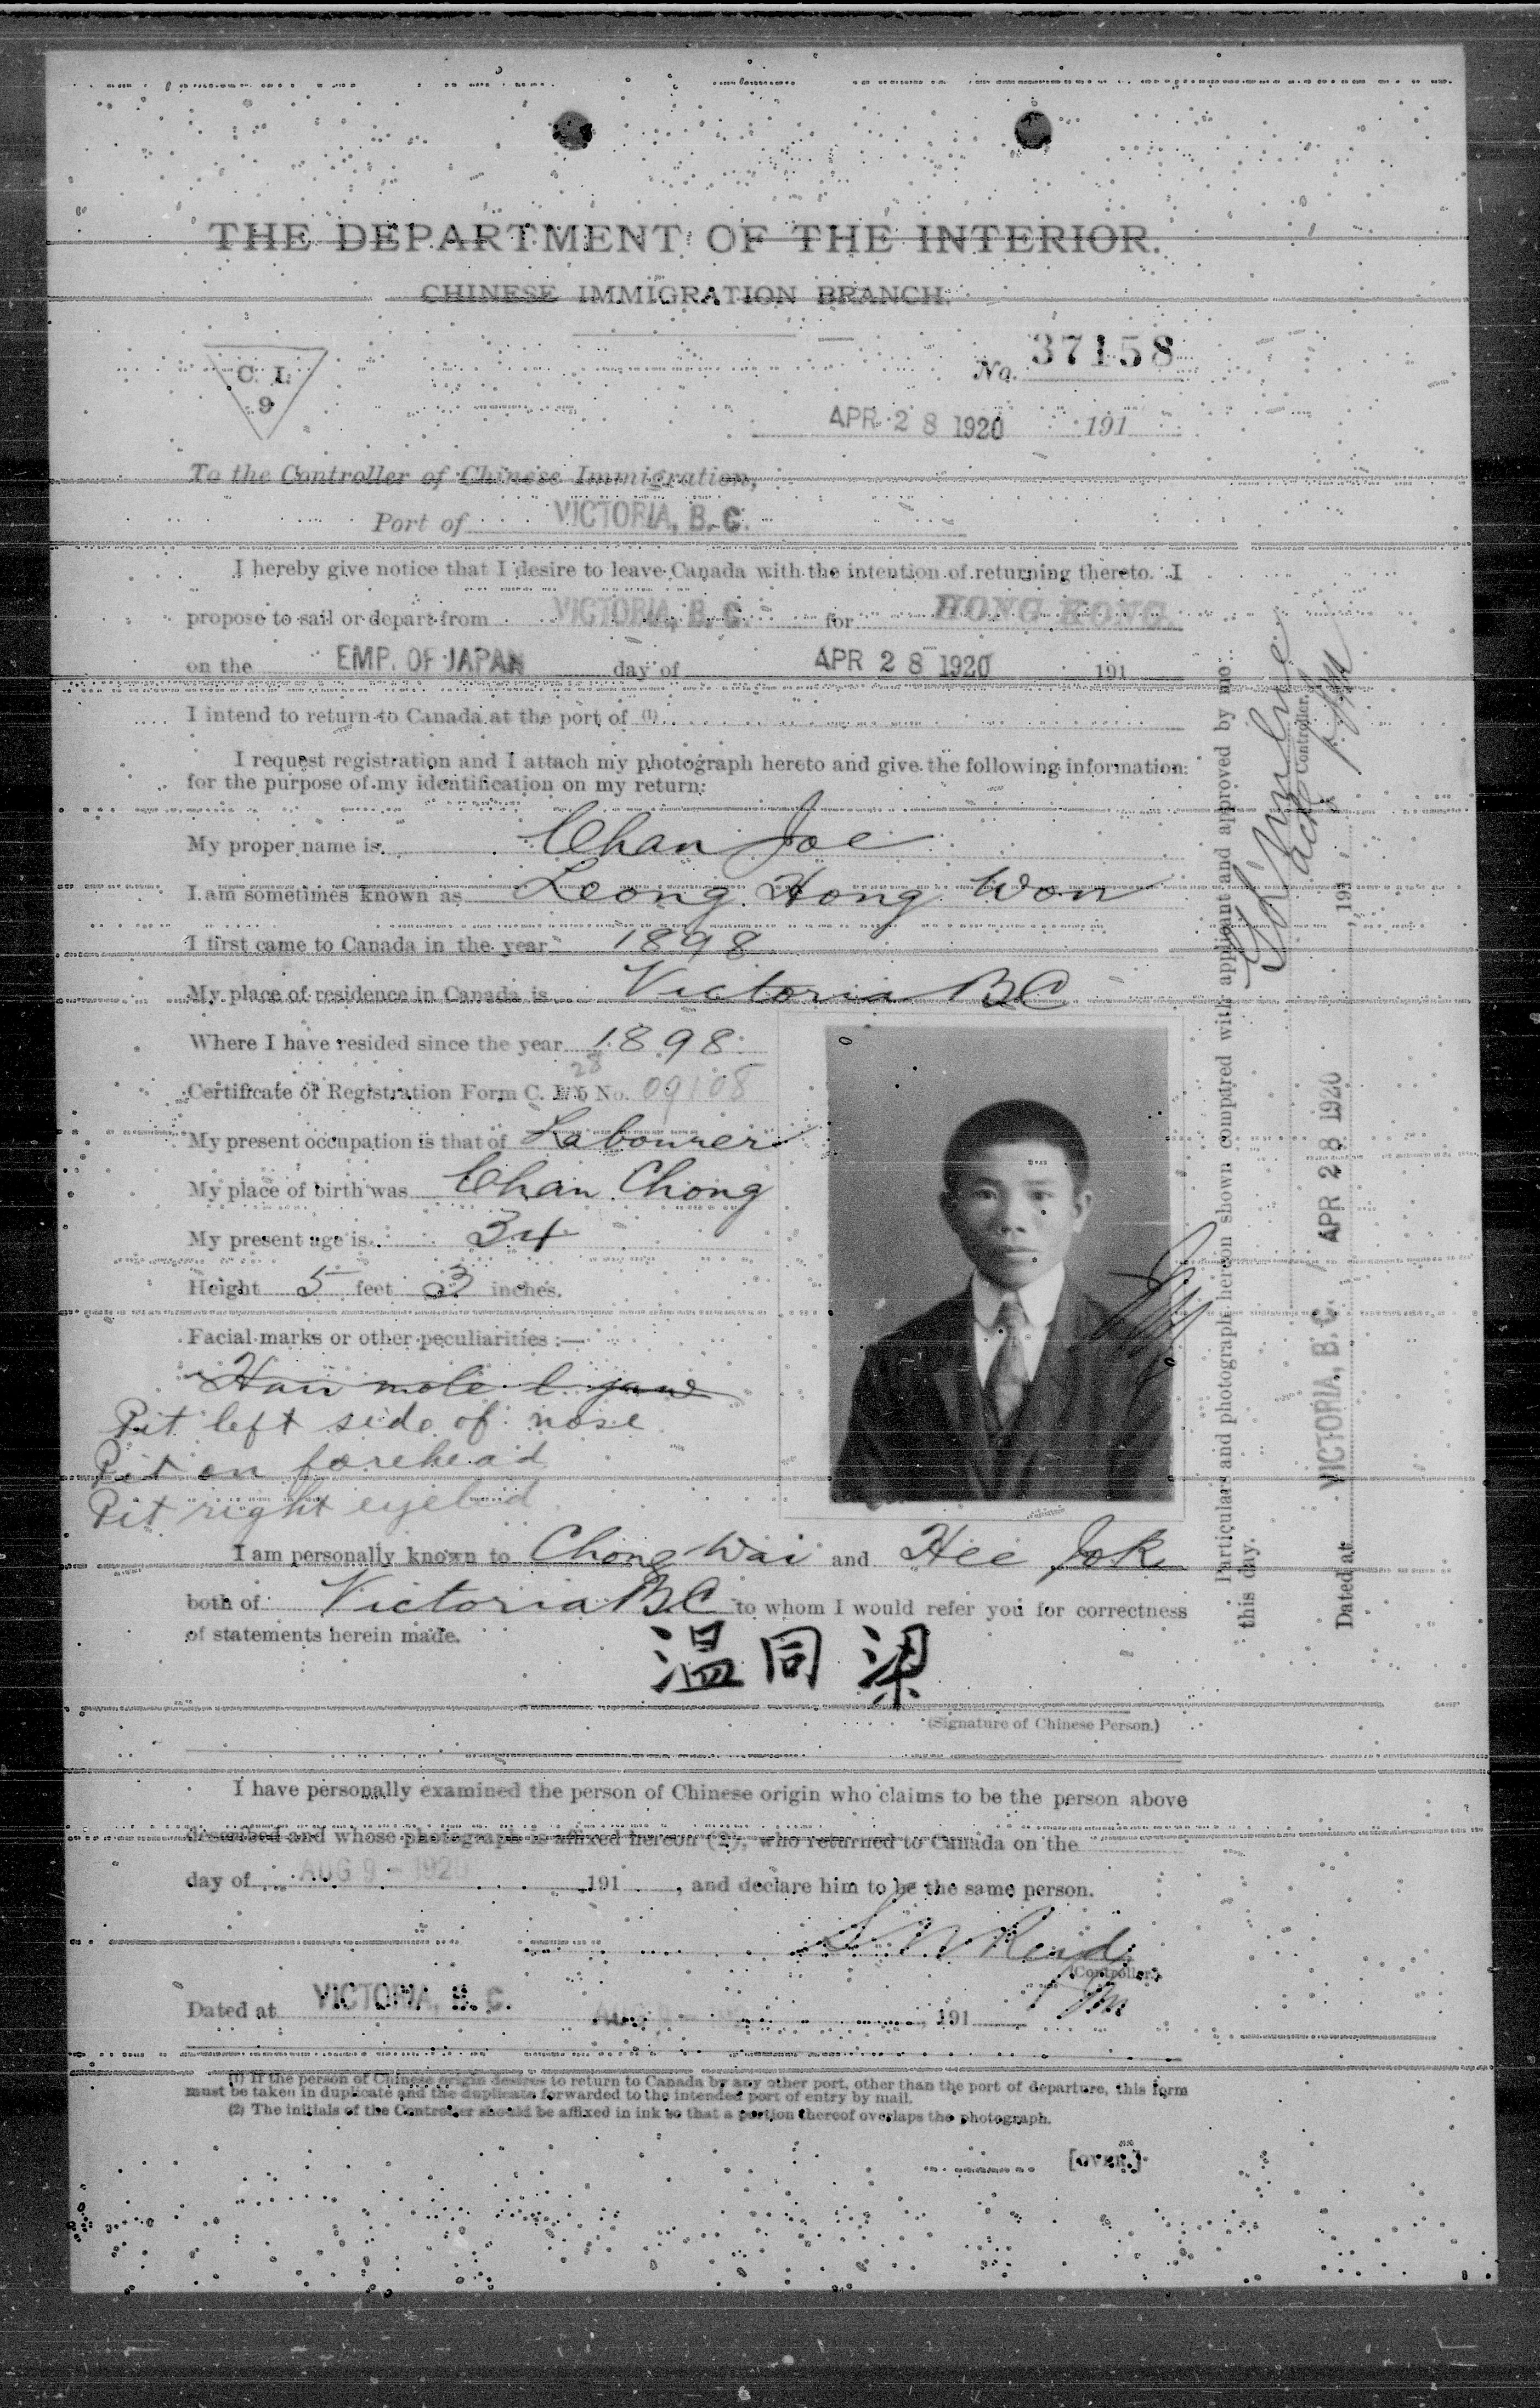 THE DEPARTMENT OF THE INTERIOR.
CHINESE IMMIGRATION BRANCH.
C. I.
9
No. 37158
APR 28 1920 191
To the Controller of Chinese Immigration,
Port of VICTORIA, B. C.
I hereby give notice that I desire to leave Canada with the intention of returning thereto. I
propose to sail or depart from VICTORIA, B. C. for HONG KONG
on the EMP. OF JAPAN day of APR 28 1920 191
I intend to return to Canada at the port of (1)
I request registration and I attach my photograph hereto and give the following information
for the purpose of my identification on my return:
My proper name is Chan Joe
I am sometimes known as Leong Hong Won
I first came to Canada in the year 1898
My place of residence in Canada is Victoria BC
Where I have resided since the year 1898
28
Certificate of Registration Form C. I. 5 No. 09108
My present occupation is that of Labourer
My place of birth was Chan Chong
My present age is 34
Height 5 feet 3 inches.
Facial marks or other peculiarities :—
Hair mole l. jaw
Pit left side of nose
Pit on forehead
Pit right eyelid
I am personally known to Chong Wai and Hee Jok
both of Victoria BC to whom I would refer you for correctness
of statements herein made.
温同梁
(Signature of Chinese Person.)
I have personally examined the person of Chinese origin who claims to be the person above
described and whose photograph is affixed hereon (2), who returned to Canada on the
day of AUG 9 - 1920 191 , and declare him to be the same person.
(Controller.)
Dated at VICTORIA, B. C. , 191
(1) If the person of Chinese origin desires to return to Canada by any other port, other than the port of departure, this form
must be taken in duplicate and the duplicate forwarded to the intended port of entry by mail.
(2) The initials of the Controller should be affixed in ink so that a portion thereof overlaps the photograph.
[OVER.]
Particulars and photograph hereon shown compared with applicant and approved by me
this day.
Controller.
Dated at VICTORIA, B. C. APR 28 1920 , 191